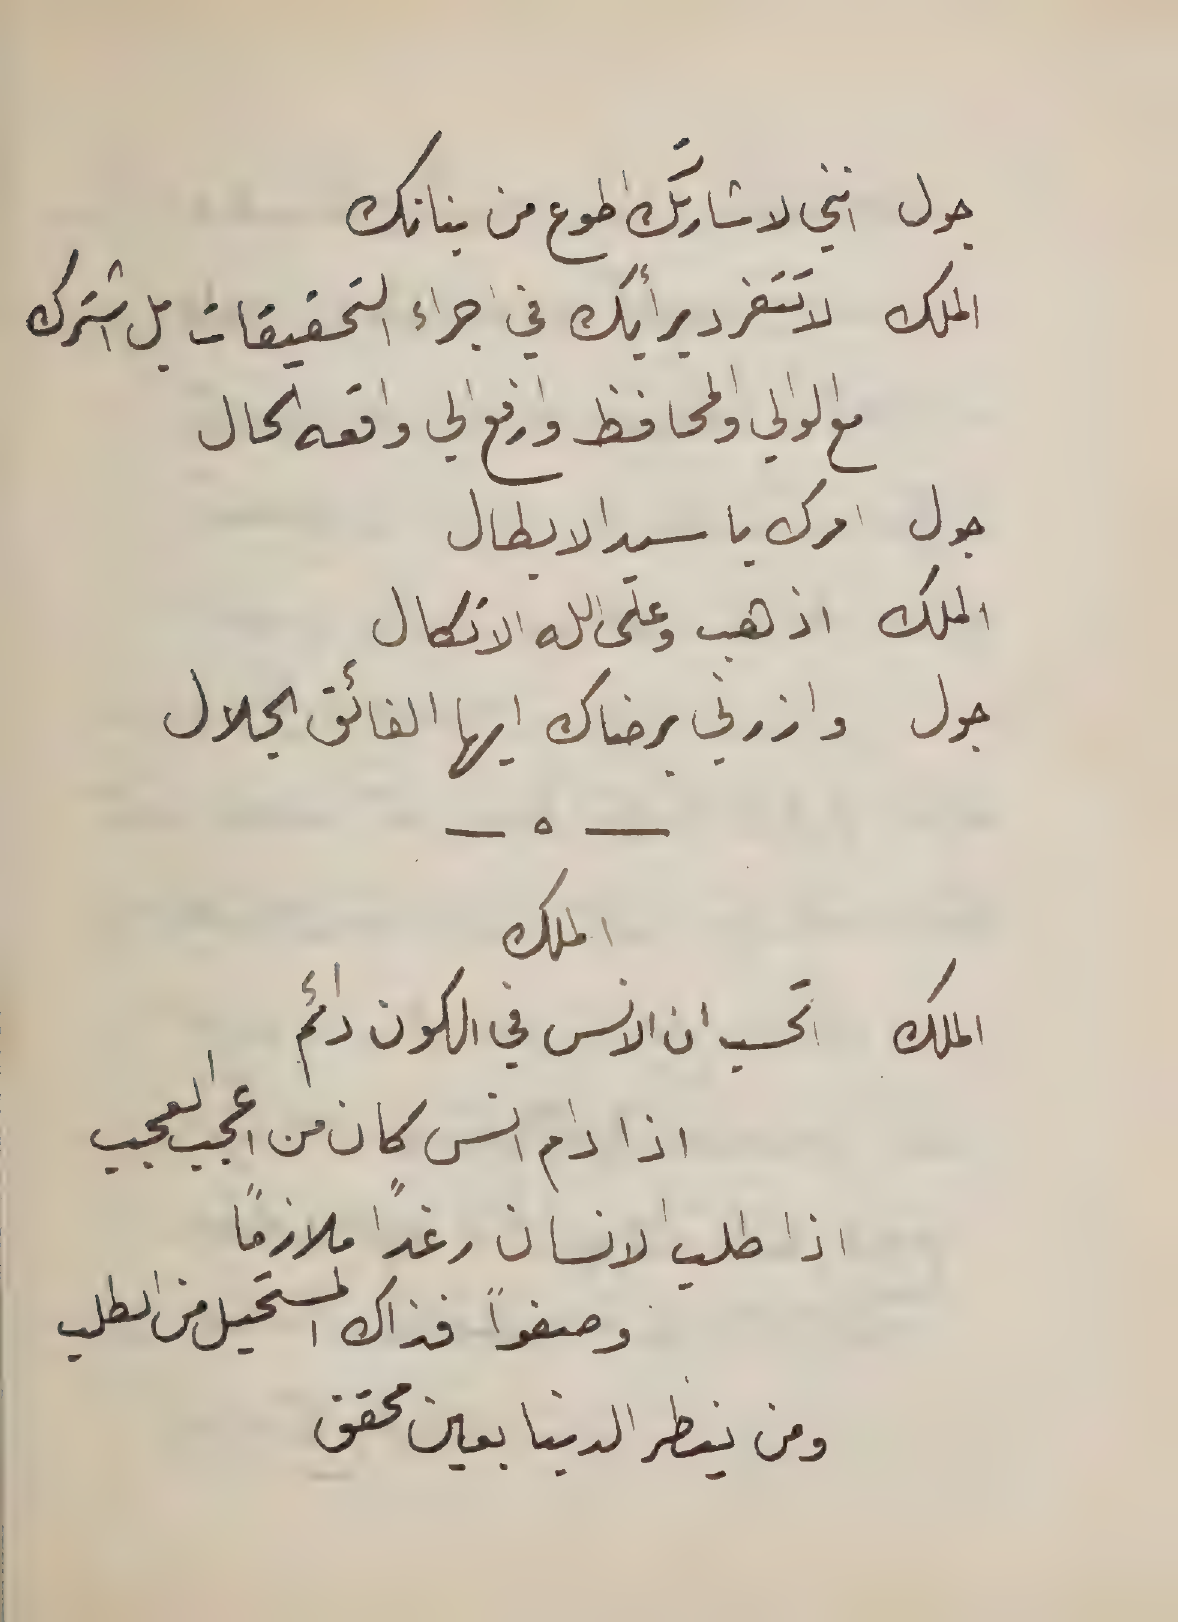 جول انني لاشارتك اطوع من بنانك
الملك لا تتفرد برأيك في اجراء التحقيقات بل اشترك
مع الوالي والمحافظ وارفع الي واقعه الحال
جول امرك يا سيد الابطال
الملك اذهب وعلى الله الاتكال
جول وازرني برضاك ايها الفائق الجلال
— ه —
الملك
الملك اتحسب ان الانس في الكون دائم
اذا دام انس كان من اعجب العجب
اذا طلب الانسان رغداً ملازماً
وصفواً فذاك المستحيل من الطلب
ومن ينظر الدنيا بعين محقق